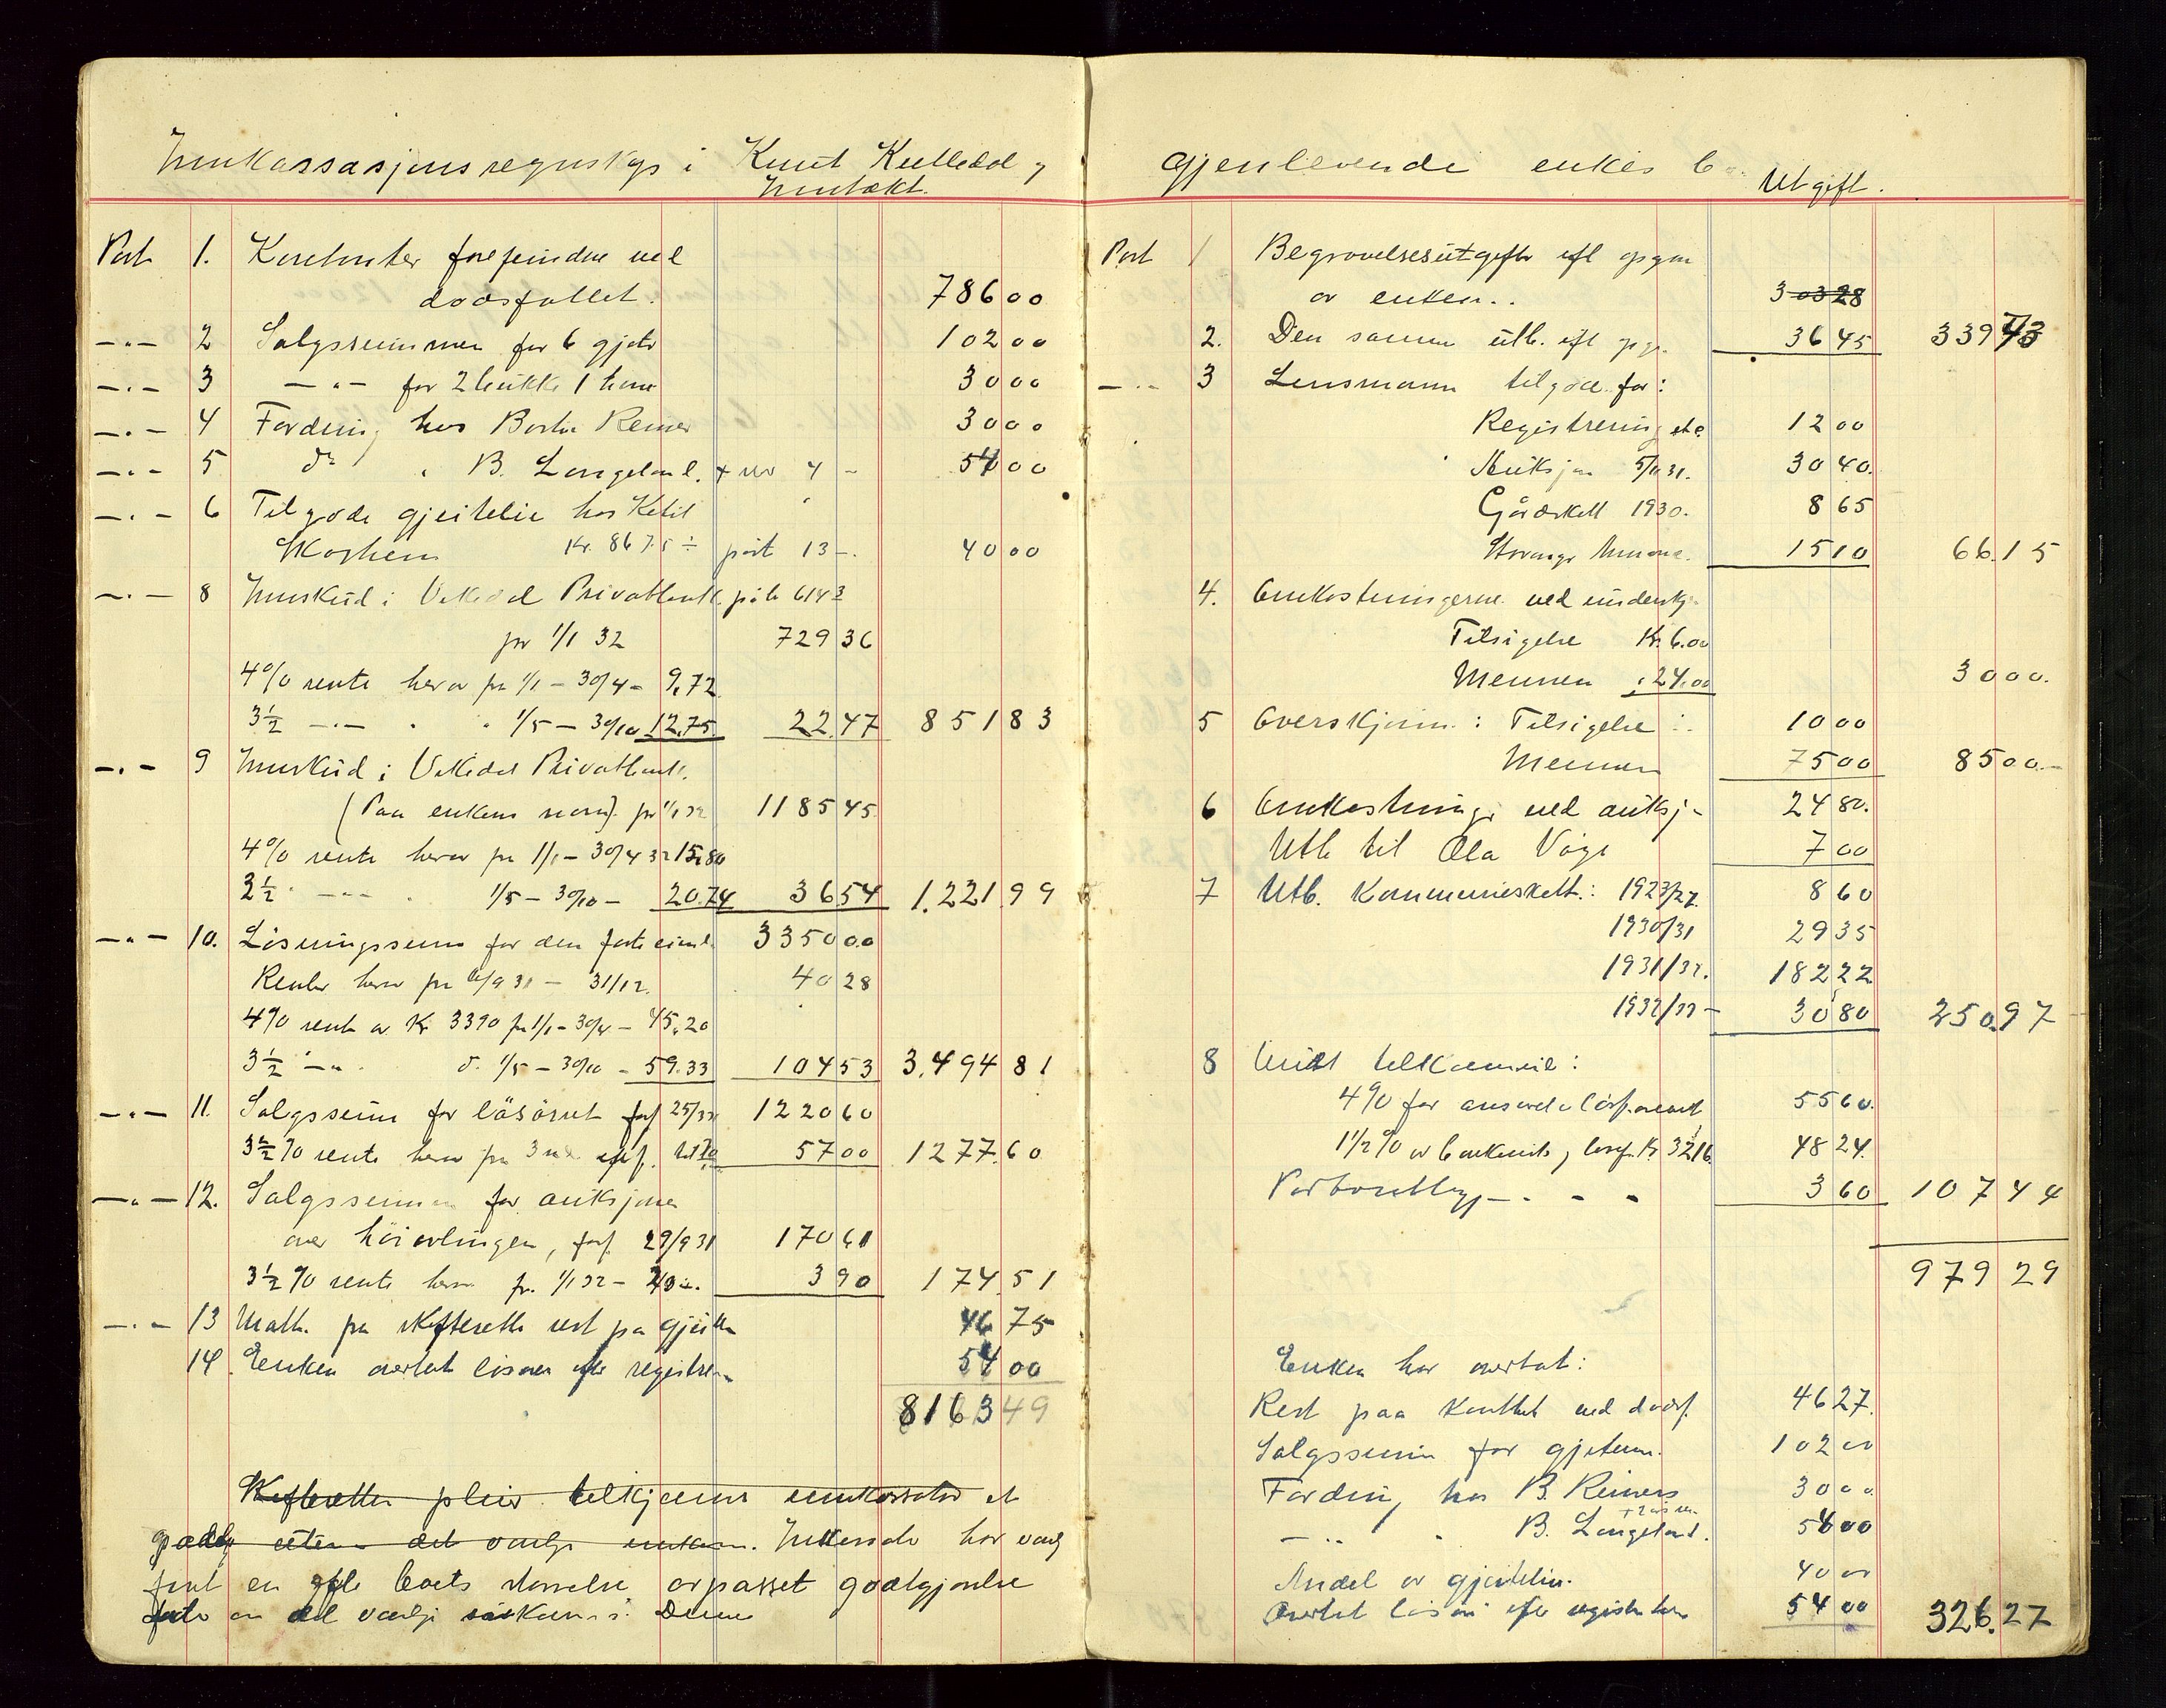 Innkassasjonsregnskap i Knut Kvelledal og
Inntækt.
Post 1. Kontanter forefinden ved
dødsfallet. 786 00
—"— 2 Salgssummen for 6 gjeter 102 00
—"— 3 —"— for 2 bukke 1 30 00
—"— 4 Fordring hos Reiner 30 00
—"— 5 do " B. Langeland. 4 — 54 00
—"— 6 Tilgode gjeiteleie hos Ketil
Kr. 86 75 ÷ post 13 —. 40 00
—"— 8 Innskud i Privatbank på b 6143
pr 1/1 32 729 36
4% rente herav fra 1/1 — 30/4 — 9,72
3½ —"— " " 1/5 — 30/10 12,75 22,47 851 83
—"— 9 Innskud i Privatbank.
(Paa enkens navn) pr 1/1 32 1185 45
4% rente herav fra 1/1 — 30/4 32 15,80
3½ " —"— " 1/5 — 30/10 — 20.74 36 54 1.221 99
—"— 10. Løsningssum for den faste eiend. 3350 00
Renter herav fra 6/9 31 — 31/12. 40 28
4% rente av Kr 3390 fra 1/1 — 30/4 — 45,20
3½ —"— d. 1/5 — 30/10 — 59.33 104 53 3.494 81
—"— 11. Salgssum for løsøret forf 25/ 1220 60
3½% rente herav fra 57 00 1277.60
—"— 12. Salgssummen for auksjonen
over høiavlingen, forf. 29/9 31 170 61
3½% rente herav fr. 1/1 32 — 3 90 174,51
—"— 13 på skifterette rest på gjeiteleie 46 75
14. Enken overtat løsøre efter registreringen 54 00
8163 49
Skifteretten pleier tilkjenne innkassator et
det vanlige Inkassator har
en efter boets størrelse avpasset godtgjørelse
det vanlige Denne
gjenlevende enkes bo.
Utgift.
Post 1 Begravelsesutgifter efl opgave
av enken.. 303 28
2. Den samme utb. efl opg. 36 45 339 73
—"— 3 Lensmannen tilgode for:
Registrering etc 12 00
Auksjon 5/ 31. 30 40.
Gårdskatt 1930. 8 65
15 10 66.15
4. Omkostningerne ved underskjønn
Tilsigelse Kr. 6.00
Mennen " 24.00 30 00.
5 Overskjønn: Tilsigelse : 10 00
Mennen 75 00 85 00.—
6 Omkostninger ved auksj— 24 80.
Utb til Ola Våge 7 00
7 Utb. Kommuneskatt: 1923/27. 8 60
1930/31 29 35
1931/32. 182 22
1932/33 — 30 80 250.97
8 tilkommer:
4% for 55 60.
1½% av 3216. 48 24.
Portoutlegg — " — " 3 60 107 44
979 29
Enken har overtat:
Rest paa kontant ved dødsf. 46 27.
Salgssum for gjetene. 102 00
Fordring hos B. Reiners 30 00
—"— " B. Langeland. 54 00
Andel av gjeiteleie. 40 00
Overtat løsøre efter registreringen 54 00 326.27